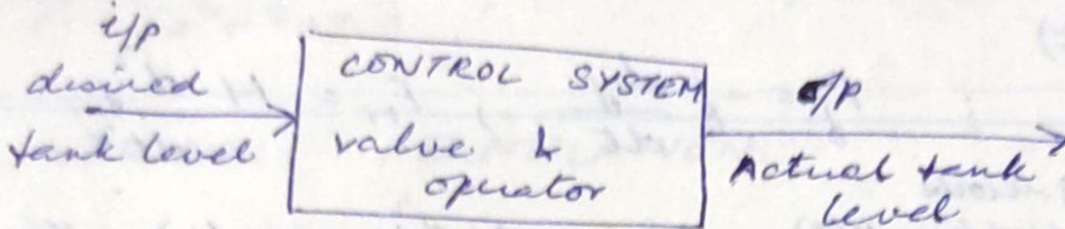 i/p
desired
tank level
CONTROL SYSTEM
value &
operator
o/p
Actual tank
level